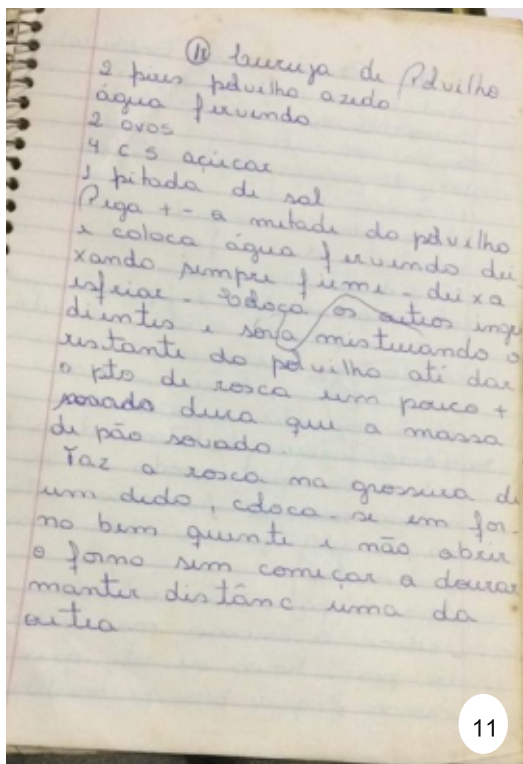 ⑪ Coruja de Polvilho
2 pires polvilho azedo
água fervendo
2 ovos
4 c s açúcar
1 pitada de sal
Pega + - a metade do polvilho
e coloca água fervendo dei
xando sempre firme - deixa
esfriar - Coloca os outros ingre
dientes e sova misturando o
restante do polvilho até dar
o pto de rosca um pouco +
dura que a massa
de pão sovado.
Faz a rosca na grossura de
um dedo, coloca-se em for-
no bem quente e não abrir
o forno sem começar a dourar
manter distânc uma da
outra
11